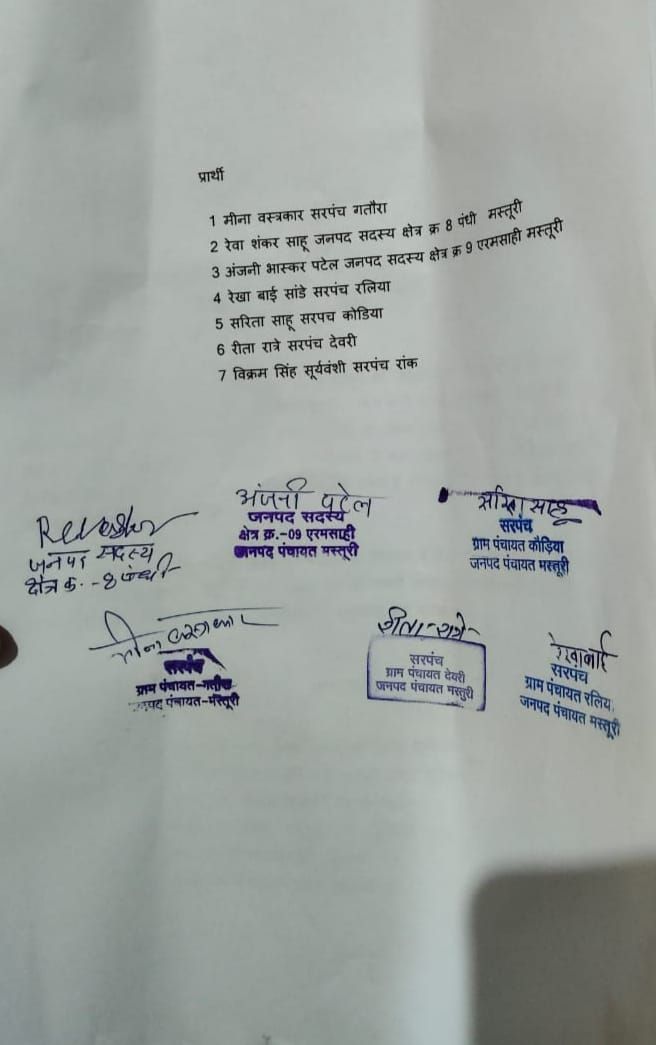 प्रार्थी
1 मीना वस्त्रकार सरपंच गतौरा
2 रेवा शंकर साहू जनपद सदस्य क्षेत्र क्र 8 पंधी मस्तूरी
3 अंजनी भास्कर पटेल जनपद सदस्य क्षेत्र क्र 9 एरमसाही मस्तूरी
4 रेखा बाई सांडे सरपंच रलिया
5 सरिता साहू सरपच कोडिया
6 रीता रात्रे सरपंच देवरी
7 विक्रम सिंह सूर्यवंशी सरपंच रांक
जनपद सदस्य
क्षेत्र क. -8 पंधी
अंजनी पटेल
जनपद सदस्य
क्षेत्र क्र.-09 एरमसाही
जनपद पंचायत मस्तूरी
सरिता साहू
सरपंच
ग्राम पंचायत कौड़िया
जनपद पंचायत मस्तूरी
मीना वस्त्रकार
सरपंच
ग्राम पंचायत-गतौरा
जनपद पंचायत-मस्तूरी
रीता रात्रे
सरपंच
ग्राम पंचायत देवरी
जनपद पंचायत मस्तुरी
रेखाबाई
सरपंच
ग्राम पंचायत रलिया
जनपद पंचायत मस्तूरी